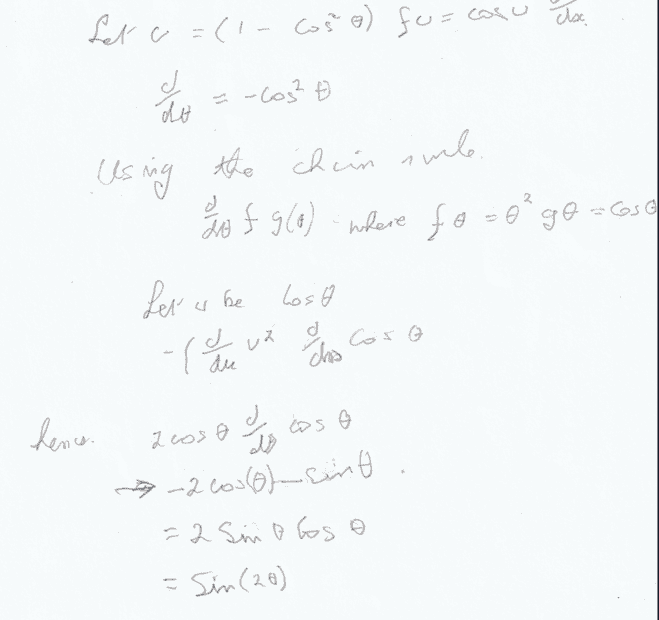 Let u = (1 - cos² θ) fu = cos u d/dx
d/dθ = -cos² θ
Using the chain rule.
d/dθ f g(θ) where f θ = θ² gθ = cos θ
Let u be cosθ
-( d/du u² d/dθ Cos θ
hence. 2 cos θ d/dθ cos θ
→ -2 cos(θ) - sin θ .
= 2 Sin θ Cos θ
= Sin(2θ)